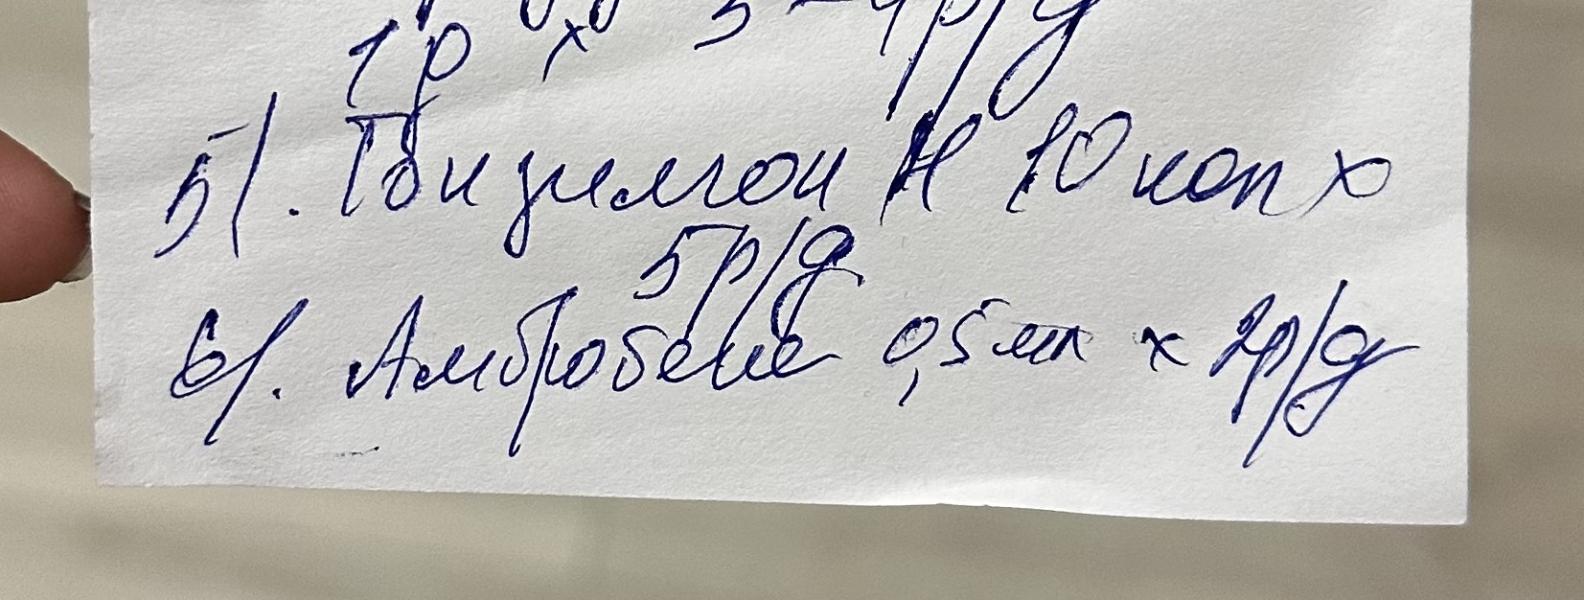 1р х 3-4р/д
5). Тонзилгон Н 10 кап х
5р/д
6). Амбробене 0,5 мл х 2р/д